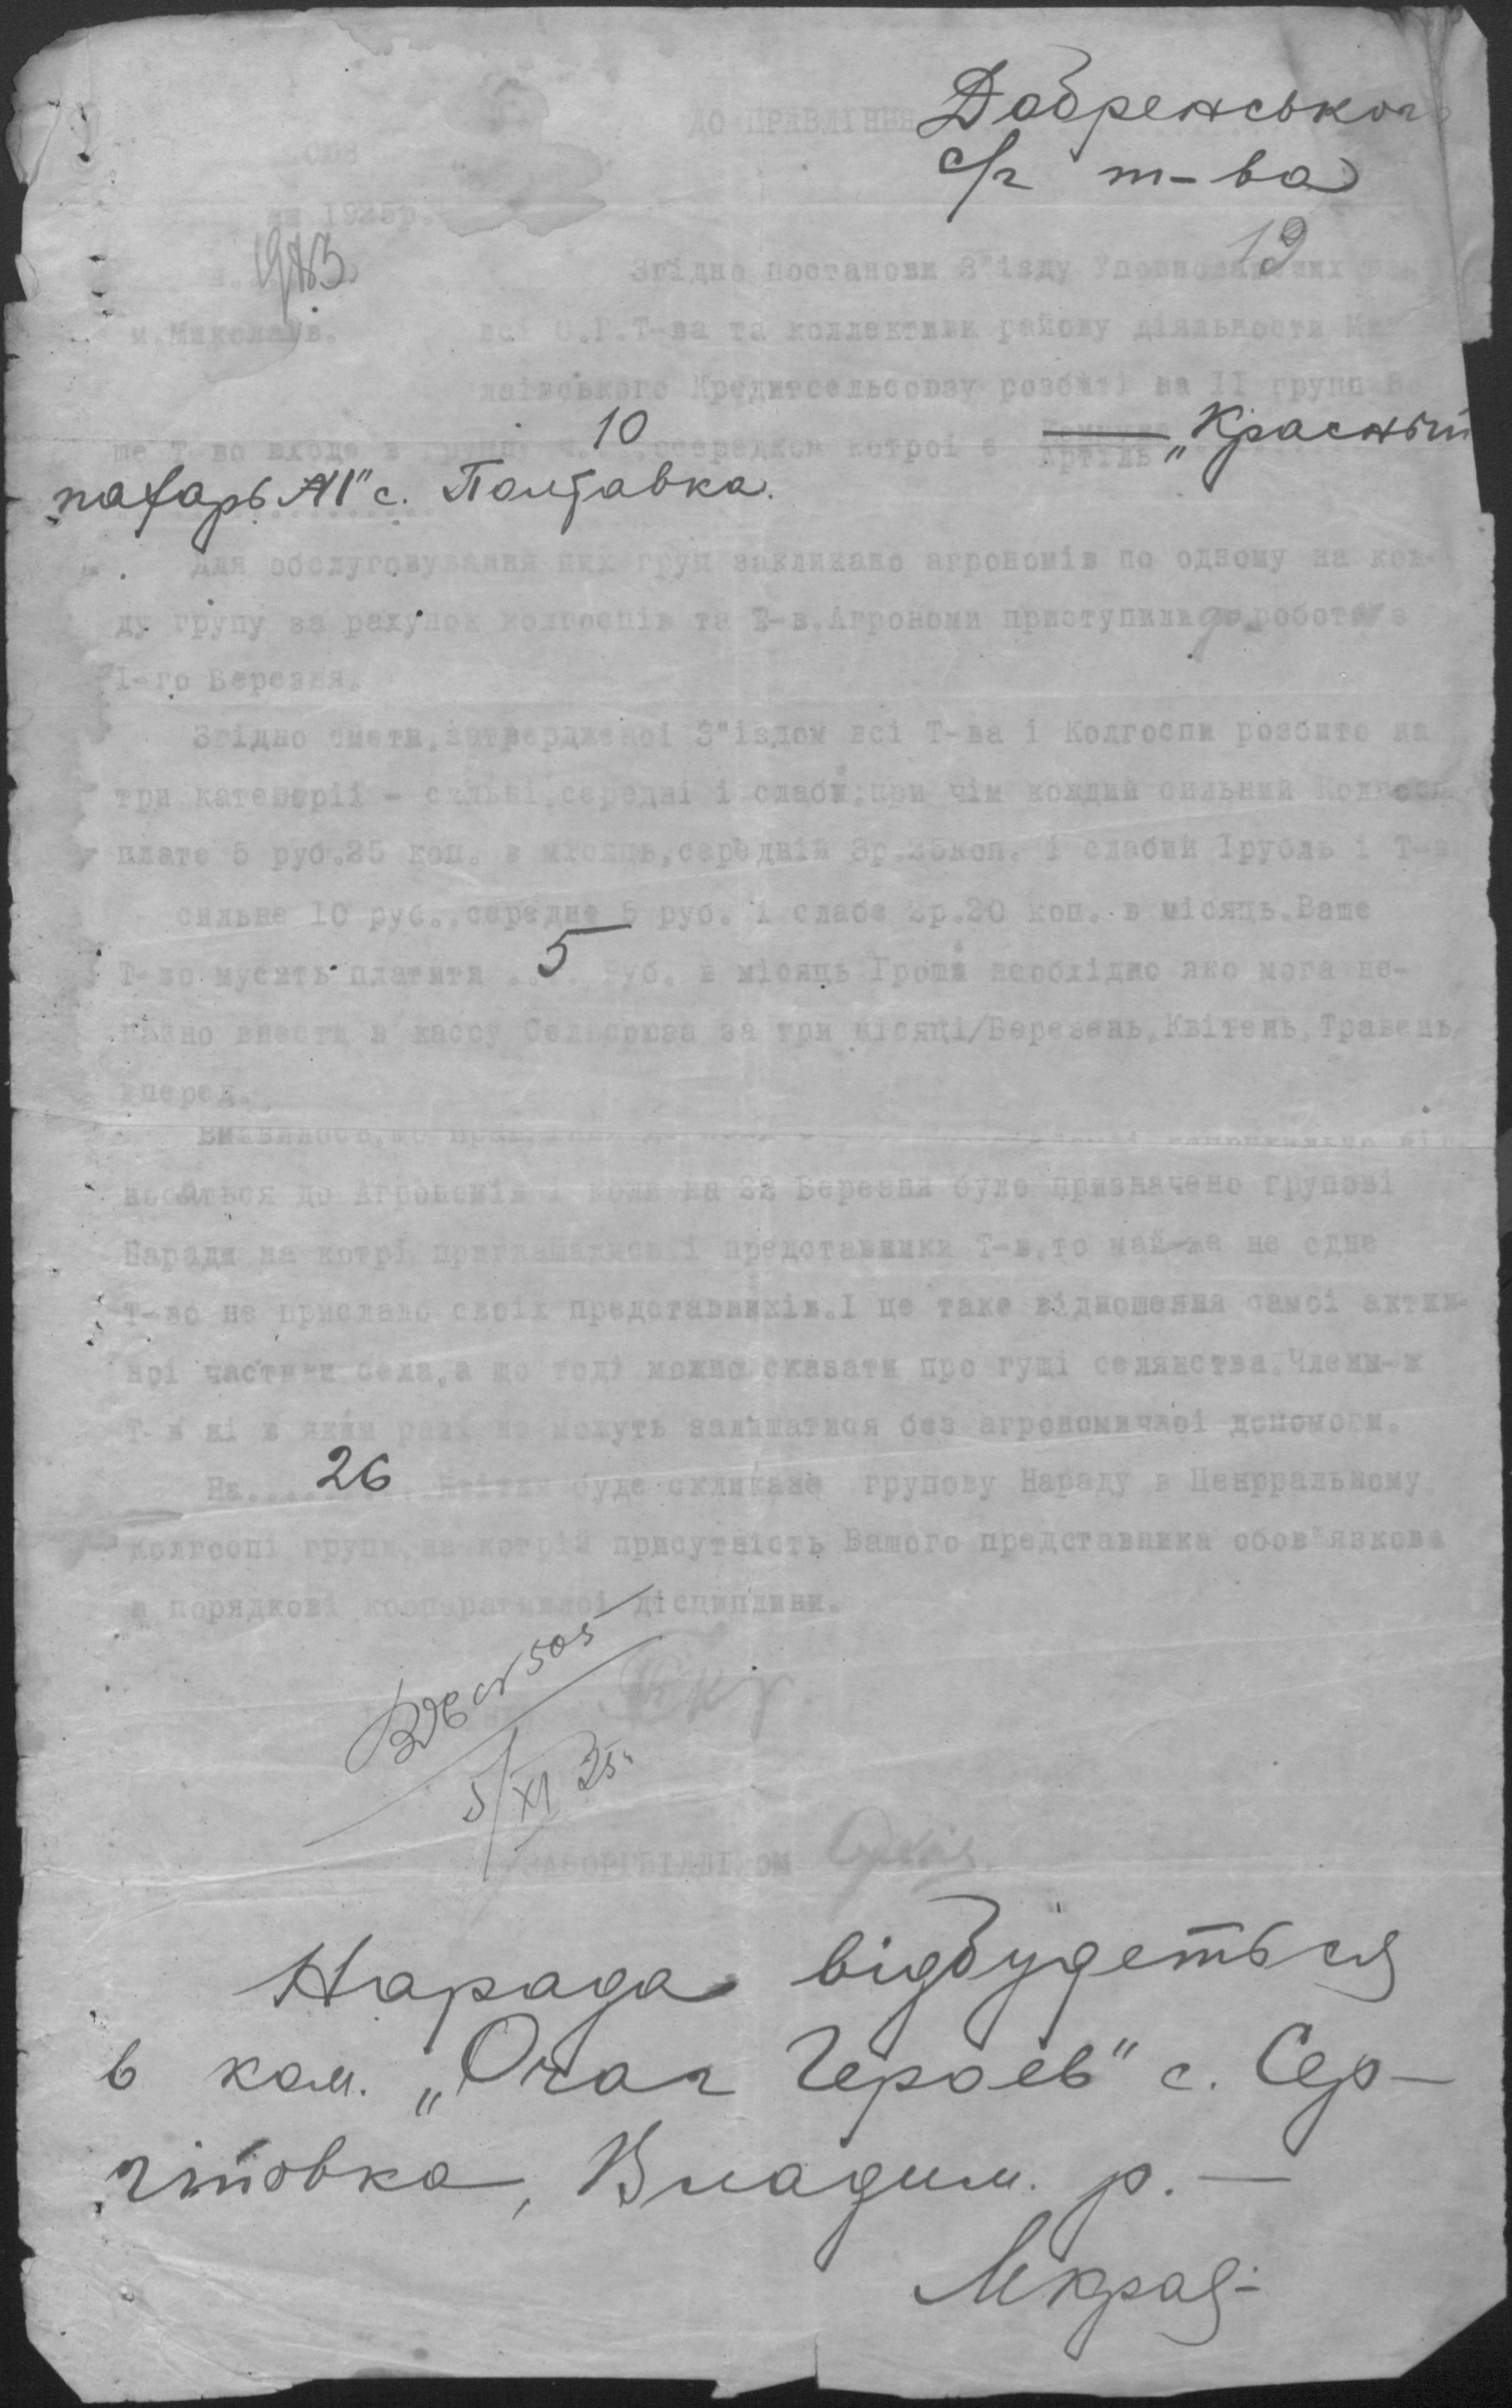 ДО ПРАВЛІННЯ Добренського
с/г т-ва
1925р.
19
1913
Згідно постанови З"їзду Уповноважених
м.Миколаїв. всі С.Г.Т-ва та коллективи району діяльности Ми
лаївського Кредитсельсоюзу розбиті на ІІ групп Ва
ше Т-во входе в групу ч. 10 осередком котроі є Артіль „Красный
пахарь №1" с. Полтавка.
Для обслуговування цих груп закликано агрономів по одному на кож-
ду групу за рахунок колгоспів та Т-в.Агрономи приступили до роботи з
І-го Березня.
Згідно смети,затвердженоі З"їздом всі Т-ва і Колгоспи розбито на
три категоріі - сильні,середні і слабі;при чім кождий сильний Колгосп
плате 5 руб.25 коп. в місяць,середній 3р.25коп. і слабий Ірубль і Т-в
сильне 10 руб.,середне 5 руб. і слабе 2р.20 коп. в місяць.Ваше
Т-во мусить платити 5 руб. в місяць.Гроші необхідно яко мога не-
гайно внести в кассу Сельсоюза за три місяці/Березень,Квітень,Травень
вперед.
Виявилось,що
носяться до Агрономів і коли на 22 Березня було призначено групові
Наради на котрі приглашались і представники Т-в,то май-же не одне
Т-во не прислало своіх представників.І це таке відношення самоі актив-
ноі частини села,а що тоді можно сказати про гущі селянства.Члени-ж
Т-в ні в якім разі не можуть залишатися без агрономичноі допомоги.
На 26 Квітня буде скликано групову Нараду в Ценрральному
колгоспі групи,на котрій присутність Вашого представника обов"язкова
в порядкові кооперативноі дісципліни.
505
5/XI 25.
Нарада відбудеться
в ком. „Очаг Героев" с. Сер-
гітовка, Владим. р. —